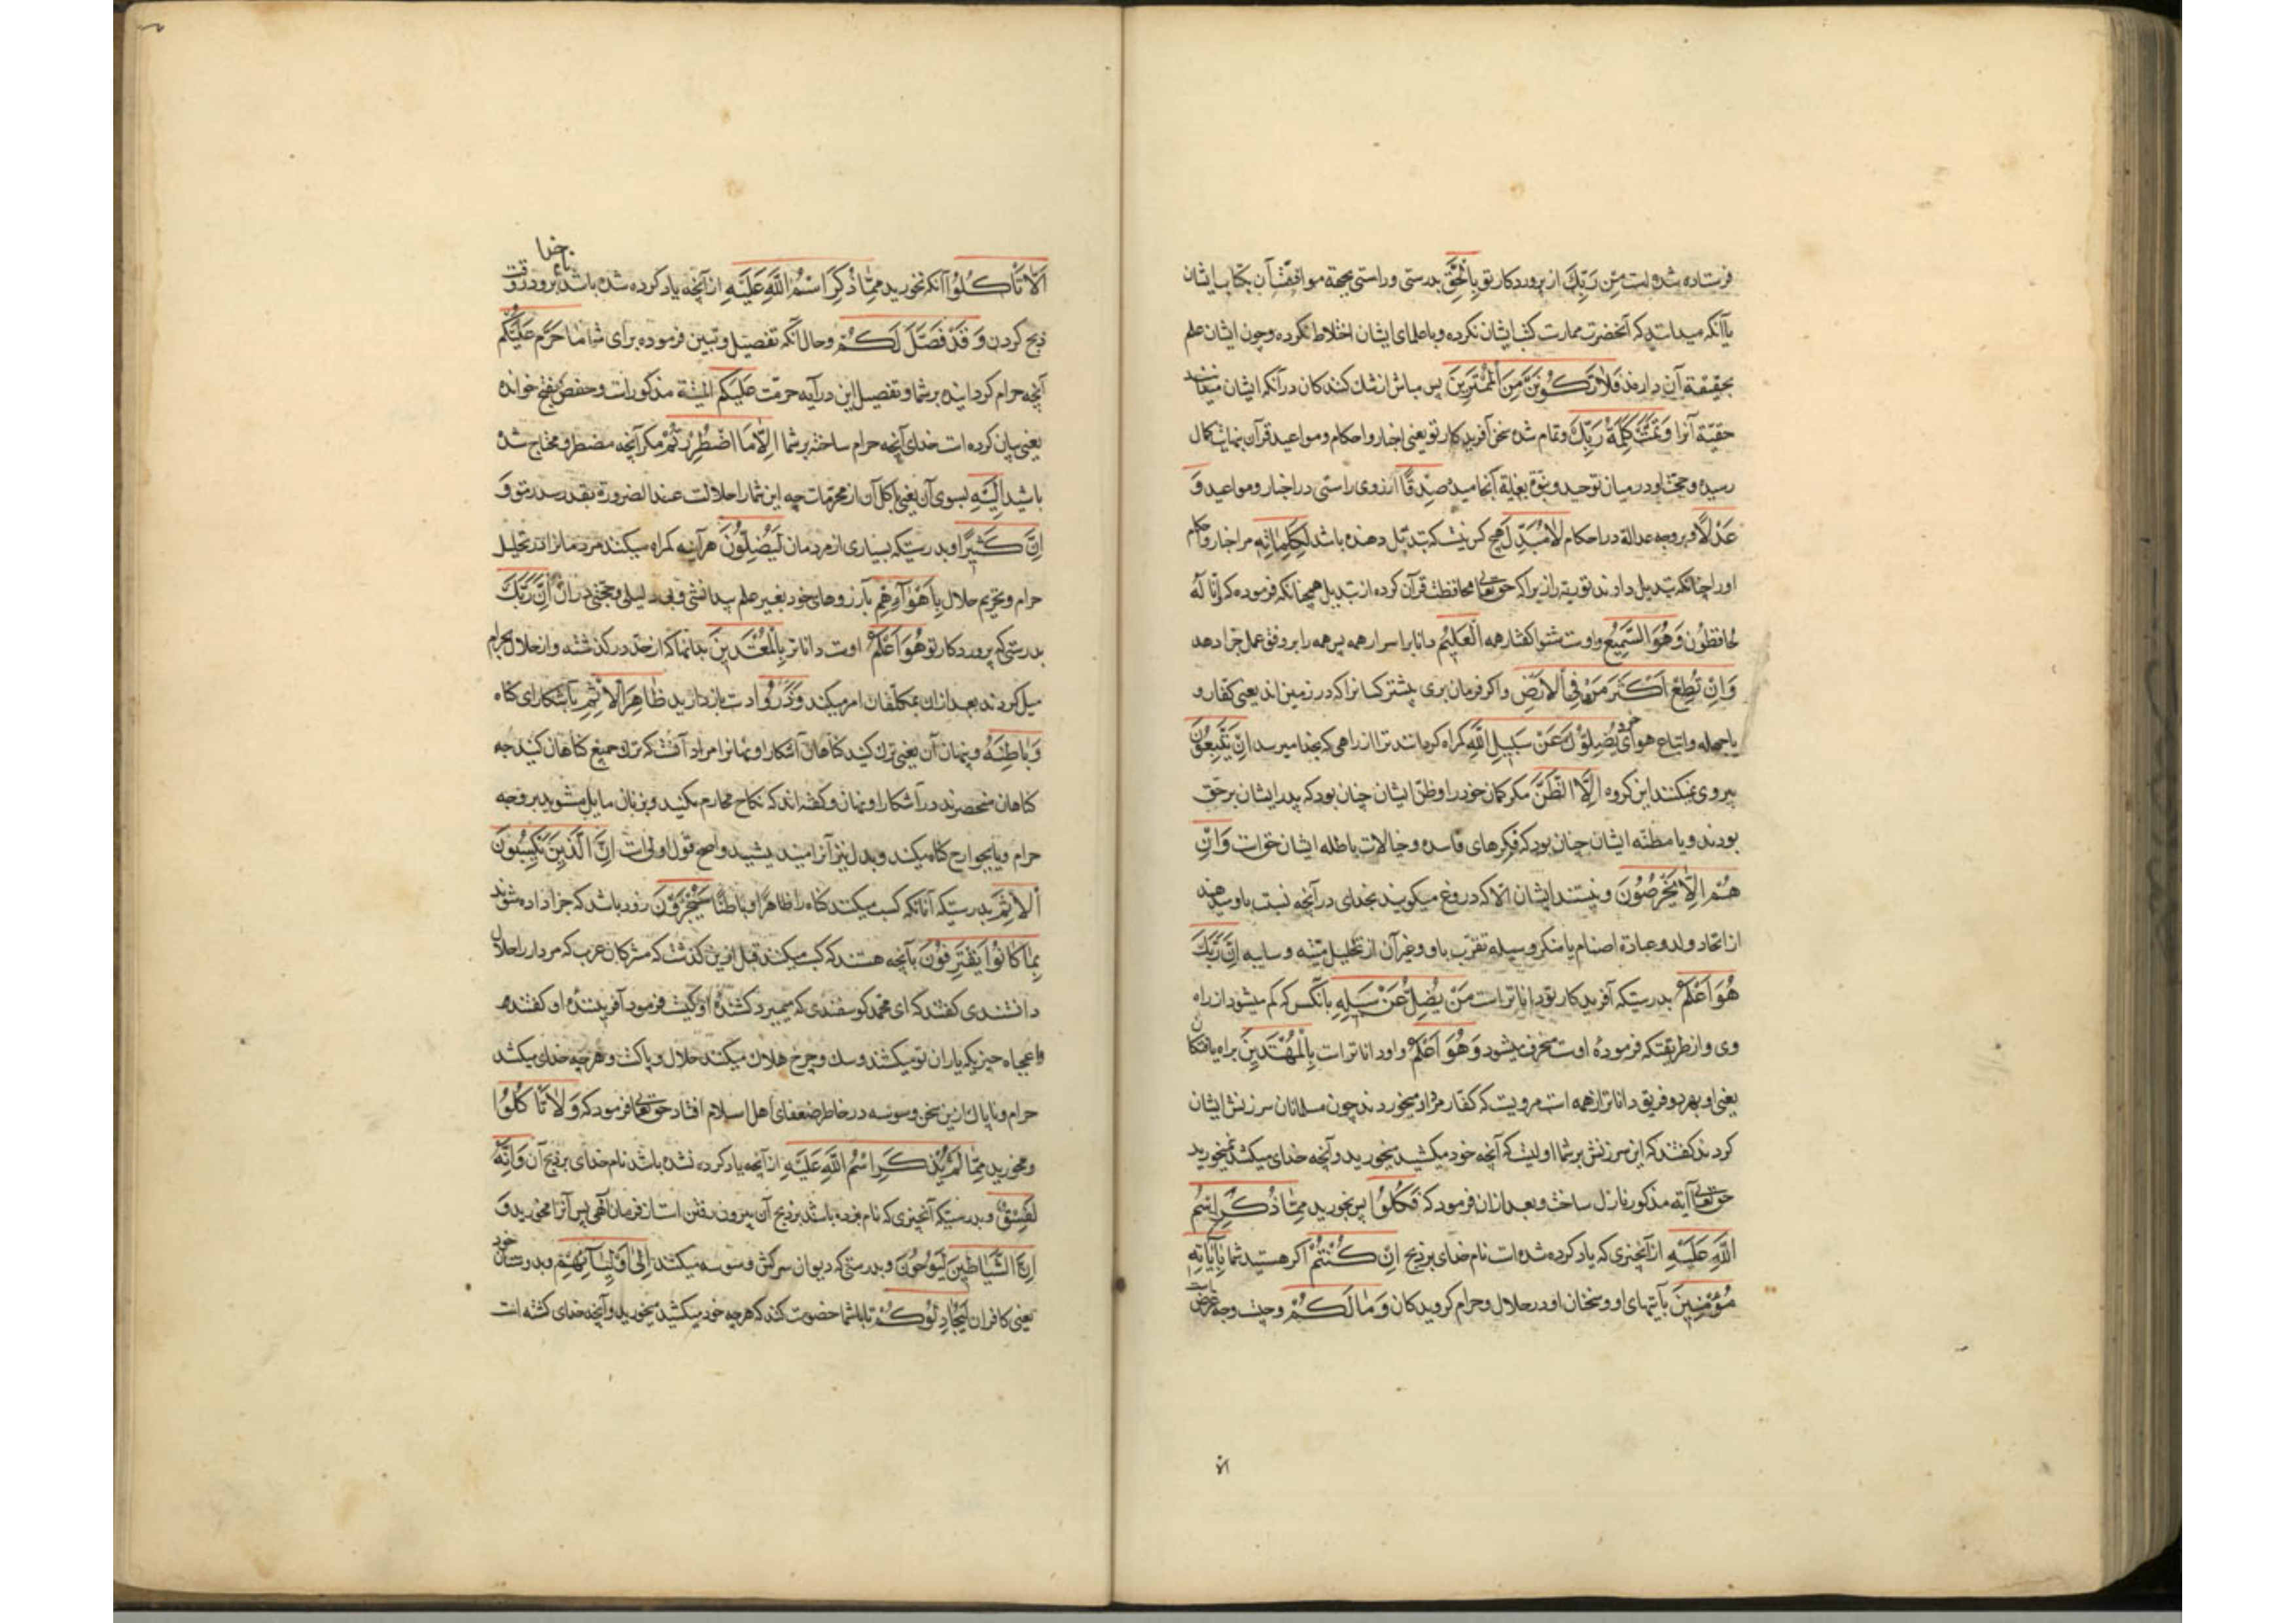 فرستاده شده است مِنْ رَبِّكَ از پروردکار تو بِالْحَقِّ بدرستی و راستی بجهة موافقت آن بکتاب ایشان
باآنکه میدانند که آنحضرت ممارست کتب ایشان نکرده و با علمای ایشان اختلاط نکرده و چون ایشان علم
بحقیقة آن دارند فَلَا تَكُونَنَّ مِنَ الْمُمْتَرِينَ پس مباش از شک کنندکان در آنکه ایشان میدانند
حقیة آنرا وَتَمَّتْ كَلِمَةُ رَبِّكَ و تمام شده سخن آفریدکار تو یعنی اخبار و احکام و مواعید قرآن بنهایت کمال
رسیده و حجت او در میان توحید و نبوة بغایة آنجامیده صِدْقًا از روی راستی در اخبار و مواعید وَ
عَدْلًا و بر وجه عدالة در احکام لَا مُبَدِّلَ هیچ کس نیست که تبدیل دهنده باشد لِكَلِمَاتِهِ مر اخبار و احکام
او را چنانکه تبدیل دادند توریة را زیرا که حق تعالی محافظت قرآن کرده از تبدیل همچنانکه فرموده که اِنَّا لَهُ
لَحَافِظُونَ وَهُوَ السَّمِيعُ و اوست شنوا کفتار همه الْعَلِيمُ دانا بر اسرار همه پس همه را بر وفق عمل جزا دهد
وَاِنْ تُطِعْ اَكْثَرَ مَنْ فِي الْاَرْضِ و اکر فرمان بری بیشتر کسانرا که در زمین اند یعنی کفار و
یا جهله و اتباع هوای خود يُضِلُّوكَ عَنْ سَبِيلِ اللهِ کمراه کردانند ترا از راهی که بخدا میرسد اِنْ يَتَّبِعُونَ
پیروی نمیکنند این کروه اِلَّا الظَّنَّ مکر کمان خود را و ظن ایشان چنان بود که پدر ایشان بر حق
بودند و یا مظنّه ایشان چنان بود که فکرهای فاسده و خیالات باطله ایشان حق است وَاِنْ
هُمْ اِلَّا يَخْرُصُونَ و نیستند ایشان الا که دروغ میکویند بخدای در آنچه نسبت باو میدهند
از اتخاد ولد و عبادة اصنام یا منکر وسیله تقرب باو و غیر آن از تحلیل میته و سایبه اِنَّ رَبَّكَ
هُوَ اَعْلَمُ بدرستیکه آفریدکار تو داناتر است مَنْ يُضِلُّ عَنْ سَبِيلِهِ بآنکس که کم میشود از راه
وی و از طریقتکه فرمودهٔ اوست منحرف میشود وَهُوَ اَعْلَمُ و او داناتر است بِالْمُهْتَدِينَ براه یافتکان
یعنی او بهر دو فریق داناتر از همه است مرویست که کفار مردار میخوردند چون مسلمانان سرزنش ایشان
کردند کفتند که این سرزنش بر شما اولیست که آنچه خود میکشید میخورید و آنچه خدای میکشد نمیخورید
حق تعالی آیه مذکور نازل ساخت و بعد ازان فرمود که فَكُلُوا پس بخورید مِمَّا ذُكِرَ اسْمُ
اللهِ عَلَيْهِ از آنچیزی که یاد کرده شده است نام خدای بر ذبح اِنْ كُنْتُمْ اکر هستید شما بِاٰيَاتِهِ
مُؤْمِنِينَ بآیتهای او و سخنان او در حلال و حرام کرویدکان وَمَا لَكُمْ و چیست وجه غرض شما
الا
اَلَّا تَأْكُلُوا آنکه نخورید مِمَّا ذُكِرَ اسْمُ اللهِ عَلَيْهِ از آنچه یاد کرده شده باشد نام خدا برو در وقت
ذبح کردن وَقَدْ فَصَّلَ لَكُمْ و حال آنکه تفصیل و تبیین فرموده برای شما مَا حَرَّمَ عَلَيْكُمْ
آنچه حرام کردانیده بر شما و تفصیل این در آیه حرمت عَلَيْكُمُ الْمَيْتَةُ مذکور است و حفص بفتح خوانده
یعنی بیان کرده است خدای آنچه حرام ساخته بر شما اِلَّا مَا اضْطُرِرْتُمْ مکر آنچه مضطر و محتاج شده
باشید اِلَيْهِ بسوی آن یعنی باکل آن از محرمات چه این شما را حلالست عند الضرورة بقدر سد رمق وَ
اِنَّ كَثِيرًا و بدرستیکه بسیاری از مردمان لَيُضِلُّونَ هرآینه کمراه میکنند مردمانرا در تحلیل
حرام و تحریم حلال بِاَهْوَائِهِمْ بآرزوهای خود بِغَيْرِ عِلْمٍ بیدانشی و بی دلیلی و حجتی در ان اِنَّ رَبَّكَ
بدرستیکه پروردکار تو هُوَ اَعْلَمُ اوست داناتر بِالْمُعْتَدِينَ بدانها که از حد در کذشته و از حلال بحرام
میل کردند بعد ازان بمکلّفان امر میکند وَذَرُوا و دست بازدارید ظَاهِرَ الْاِثْمِ بآشکارای کناه
وَبَاطِنَهُ و پنهان آن یعنی ترک کنید کناهان آشکارا و پنهانرا مراد آنست که ترک جمیع کناهان کنید چه
کناهان منحصرند در آشکارا و نهان و کفته اند که نکاح محارم مکنید و بزنان مایل مشوید بر وجه
حرام و یا بجوارح کناه میکند و بدل نیز آنرا میندیشید و اصح قول اولست اِنَّ الَّذِينَ يَكْسِبُونَ
الْاِثْمَ بدرستیکه آنانکه کسب میکنند کناه را ظاهراً و باطناً سَيُجْزَوْنَ زود باشد که جزا داده شوند
بِمَا كَانُوا يَقْتَرِفُونَ بآنچه هستند که کسب میکنند قبل ازین کذشت که مشرکان عرب که مردار را حلال
دانستندی کفتند که ای محمد کوسفندی که میمیرد کشندهٔ او کیست فرمود آفرینندهٔ او کفتند
واعجباه چیزیکه یاران تو میکشند و سک و چرخ هلاک میکنند حلال و پاکست و هرچه خدای میکشد
حرام و ناپاک ازین سخن وسوسه در خاطر ضعفای اهل اسلام افتاد حق تعالی فرمود که وَلَا تَأْكُلُوا
و مخورید مِمَّا لَمْ يُذْكَرِ اسْمُ اللهِ عَلَيْهِ از آنچه یاد کرده نشده باشد نام خدای بر ذبح آن وَاِنَّهُ
لَفِسْقٌ و بدرستیکه آنچیزی که نام نبرده باشند بر ذبح آن بیرون رفتن است از فرمان الهی پس آنرا مخورید وَ
اِنَّ الشَّيَاطِينَ لَيُوحُونَ و بدرستیکه دیوان سرکش وسوسه میکنند اِلٰى اَوْلِيَائِهِمْ و بدوستان خود
یعنی کافران لِيُجَادِلُوكُمْ تا با شما خصومت کند که هرچه خود میکشید میخورید و آنچه خدای کشته است